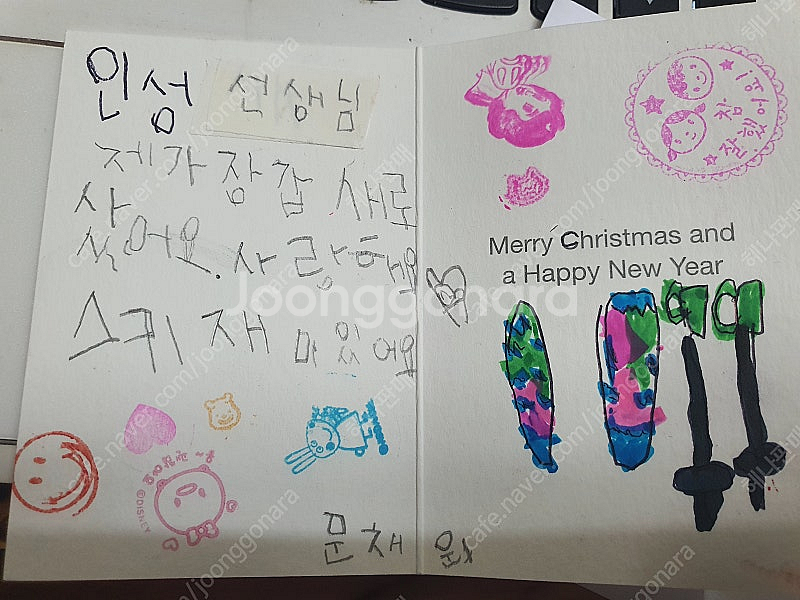 인성 선생님
제가 장갑 새로
사
실어요. 사랑해요
스키 재미있어요
문채원
참
잘했어요!
Merry Christmas and
a Happy New Year
©DISNEY
Joonggonara
cafe.naver.com/joonggonara